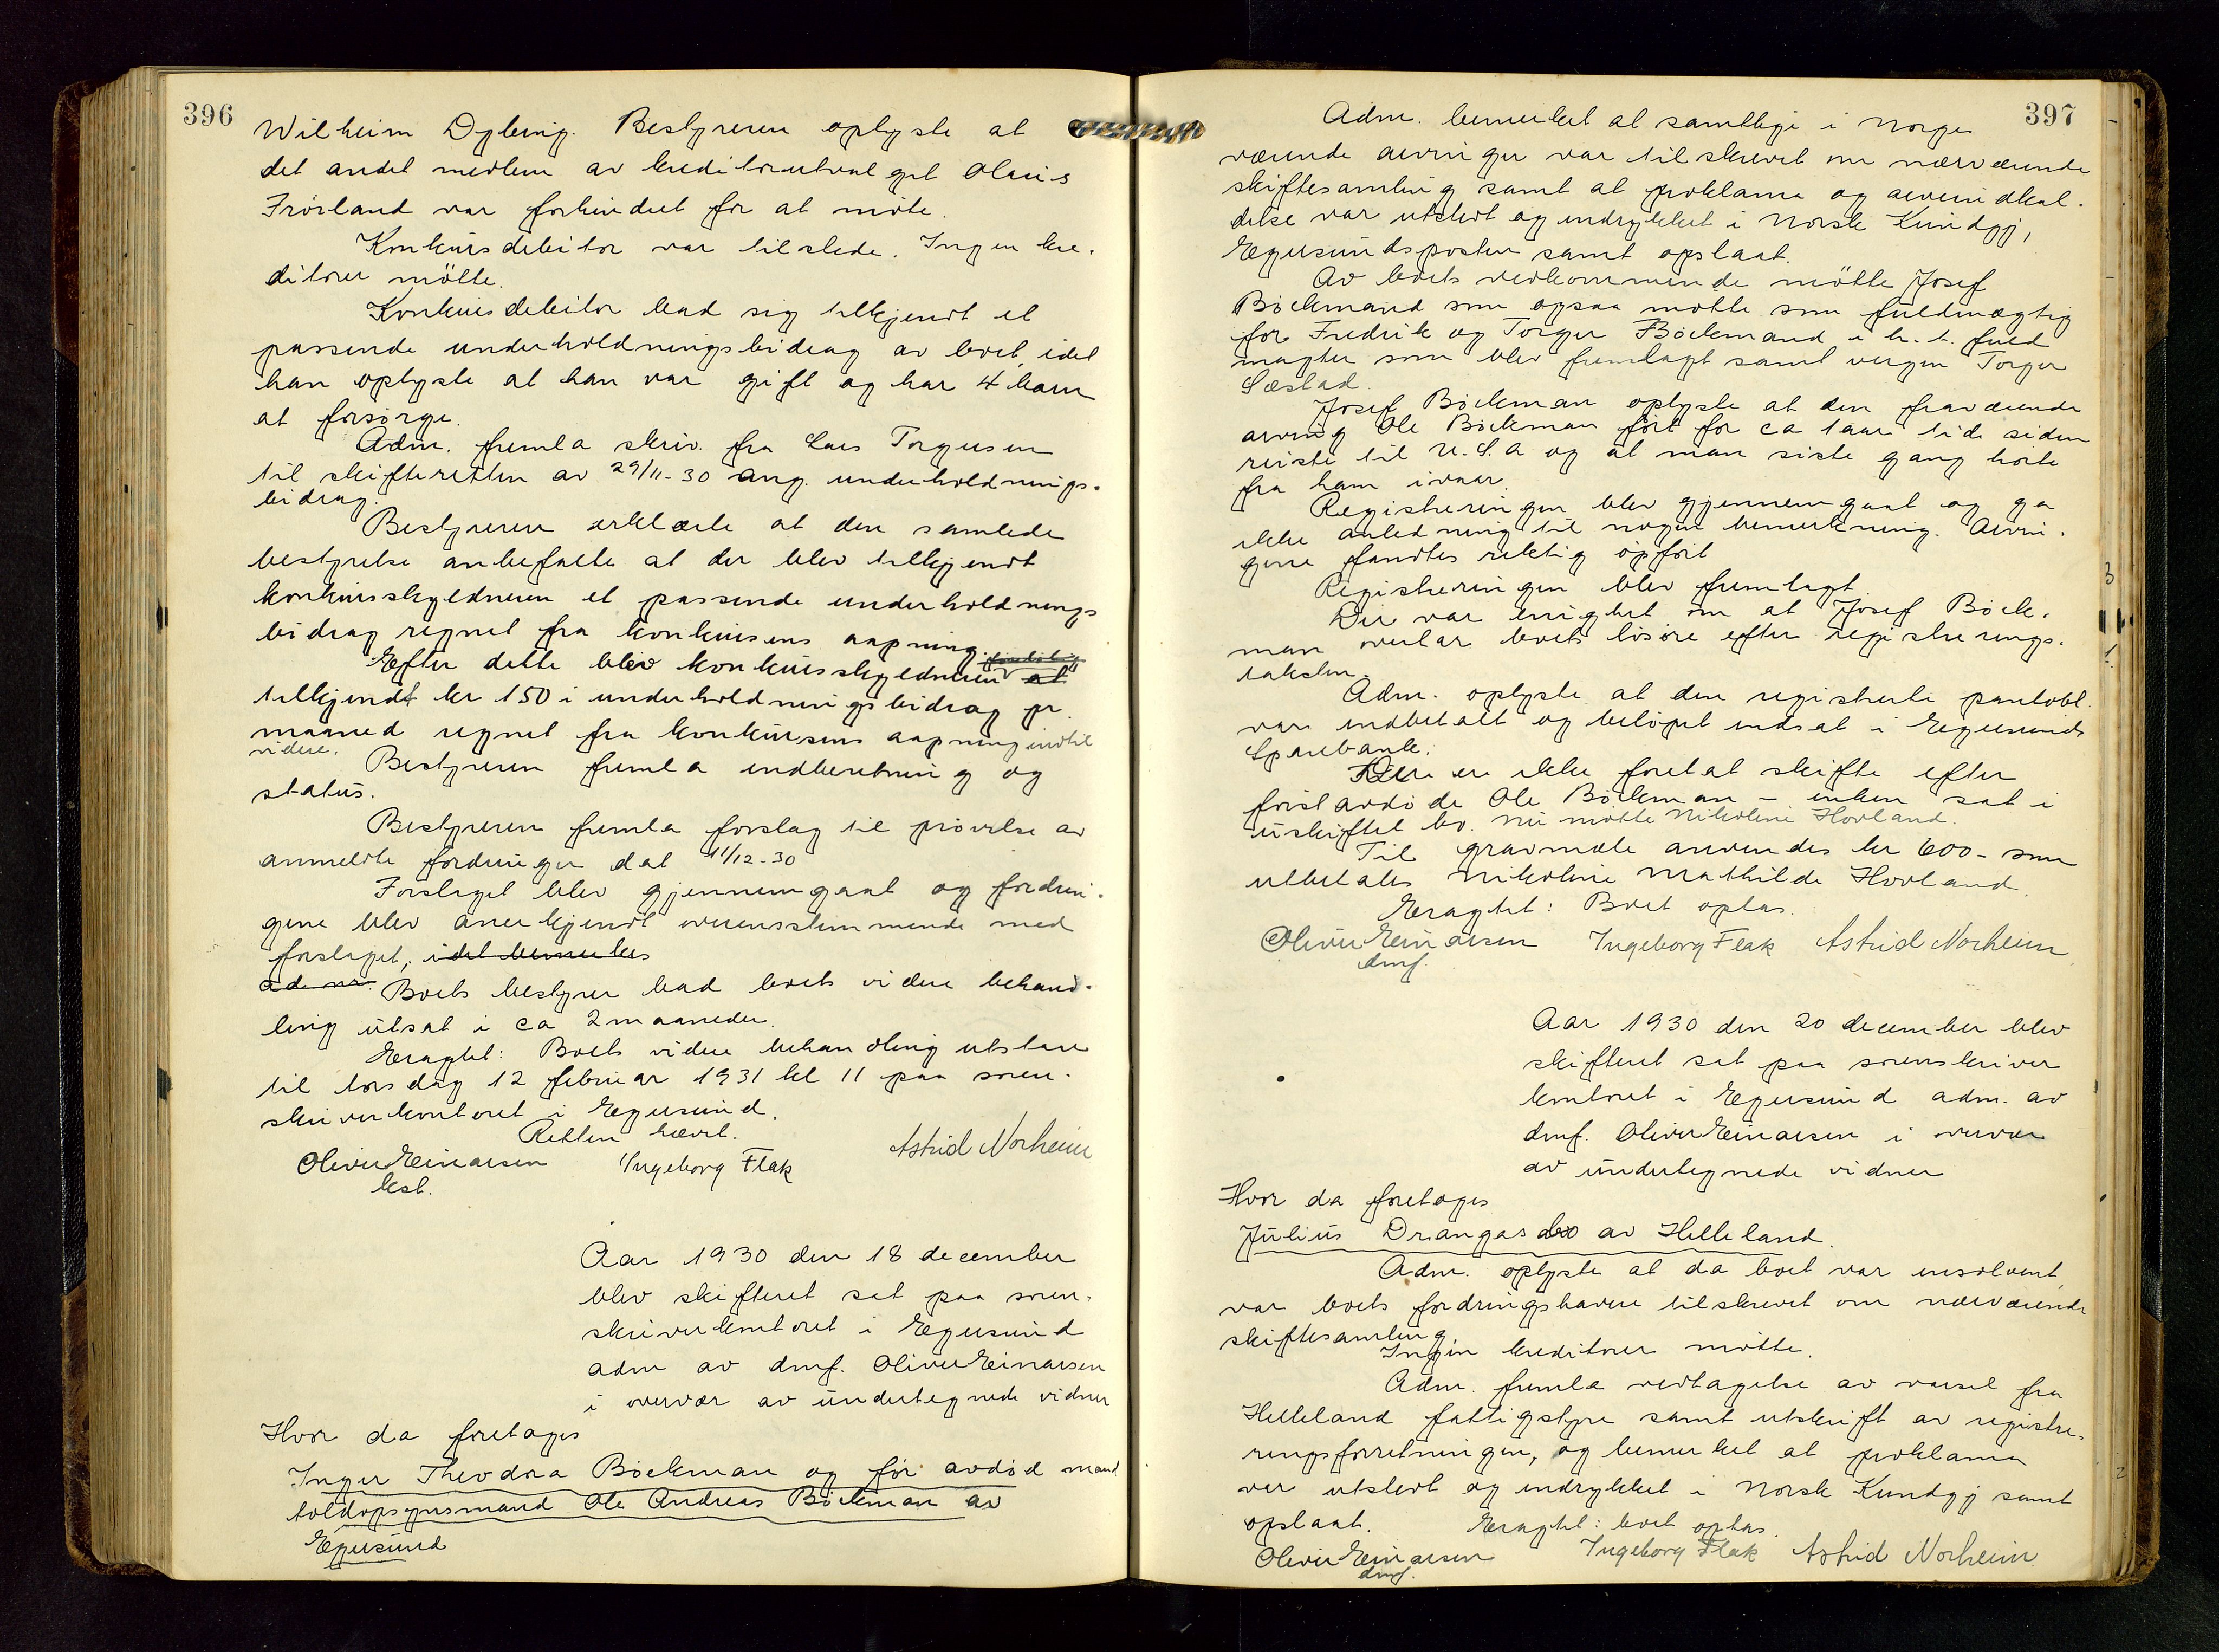 396
Wilheim Dybing. Bestyreren oplyste at
det andet medlem av kreditorutvalget Olaus
Frøiland var forhindret for at møte.
Konkursdebitor var tilstede. Ingen kre-
ditorer møtte.
Konkursdebitor bad sig tilkjendt et
passende underholdningsbidrag av boet, idet
han oplyste at han var gift og har 4 barn
at forsørge.
Adm. fremla skriv. fra Lars Torgersen
til skifteretten av 29/11-30 ang. underholdnings-
bidrag.
Bestyreren erklærte at den samlede
bestyrelse anbefalte at der blev tilkjendt
konkursskyldneren et passende underholdnings
bidrag regnet fra konkursens aapning.
Efter dette blev konkursskyldneren foreløbig et
tilkjendt kr 150 i underholdningsbidrag pr.
maaned regnet fra konkursens aapning indtil
videre.
Bestyreren fremla indberetning og
status.
Bestyreren fremla forslag til prøvelse av
anmeldte fordringer dat 11/12-30
Forslaget blev gjennemgaat og fordrin-
gene blev anerkjendt overensstemmende med
forslaget, idet bemerkes
ad nr. Boets bestyrer bad boets videre behand-
ling utsat i ca 2 maaneder.
Eragtet: Boets videre behandling utstaar
til torsdag 12 februar 1931 kl 11 paa soren-
skriverkontoret i Egersund.
Retten hævet.
Oliver Einarsen Ingeborg Flak Astrid Norheim
kst.
Aar 1930 den 18 december
blev skifteret sat paa soren-
skriverkontoret i Egersund
adm av dmf. Oliver Einarsen
i overvær av undertegnede vidner
Hvor da foretoges
Inger Theodora Böckman og før avdød mand
toldopsynsmand Ole Andreas Böckman av
Egersund
397
Adm. bemerket at samtlige i Norge
værende arvinger var tilskrevet om nærværende
skiftesamling samt at proklama og arveindkal-
delse var utstedt og indrykket i Norsk Kundgj,
Egersundsposten samt opslaat.
Av boets vedkommende møtte Josef
Böckmand som ogsaa møtte som fuldmægtig
for Fredrik og Torger Böckmand i h. t. fuld
magter som blev fremlagt samt vergen Torger
Sæstad.
Josef Böckman oplyste at den fraværende
arving Ole Böckman fört for ca 1 aar tid siden
reiste til U.S.A og at man siste gang hørte
fra ham ivaar.
Registreringen blev gjennemgaat og ga
ikke anledning til nogen bemerkning. Arvin-
gene fandtes riktig opført
Registreringen blev fremlagt.
Der var enighet om at Josef Böck-
man overtar boets løsøre efter registrerings-
taksten.
Adm. oplyste at den registrerte pantobl.
var indbetalt og beløpet indsat i Egersunds
Sparebank.
Der er ikke foretat skifte efter
førstavdøde Ole Böckman – enken sat i
uskiftet bo. Nu møtte Nikoline Hovland.
Til gravmæle anvendes kr 600- som
utbetales Nikoline Mathilde Hovland.
Eragtet: Boet optas.
Oliver Einarsen Ingeborg Flak Astrid Norheim
dmf.
Aar 1930 den 20 december blev
skifteret sat paa sorenskriver
kontoret i Egersund adm. av
dmf. Oliver Einarsen i overvær
av undertegnede vidner
Hvor da foretoges
Julius Drangas bo av Helleland.
Adm. oplyste at da boet var insolvent,
var boets fordringshavere tilskrevet om nærværende
skiftesamling.
Ingen kreditorer møtte.
Adm. fremla vedtagelse av varsel fra
Helleland fattigstyre samt utskrift av registre-
ringsforretningen, og bemerket at proklama
var utstedt og indrykket i Norsk Kundgj samt
opslaat. Eragtet: boet optas.
Oliver Einarsen Ingeborg Flak Astrid Norheim
dmf.